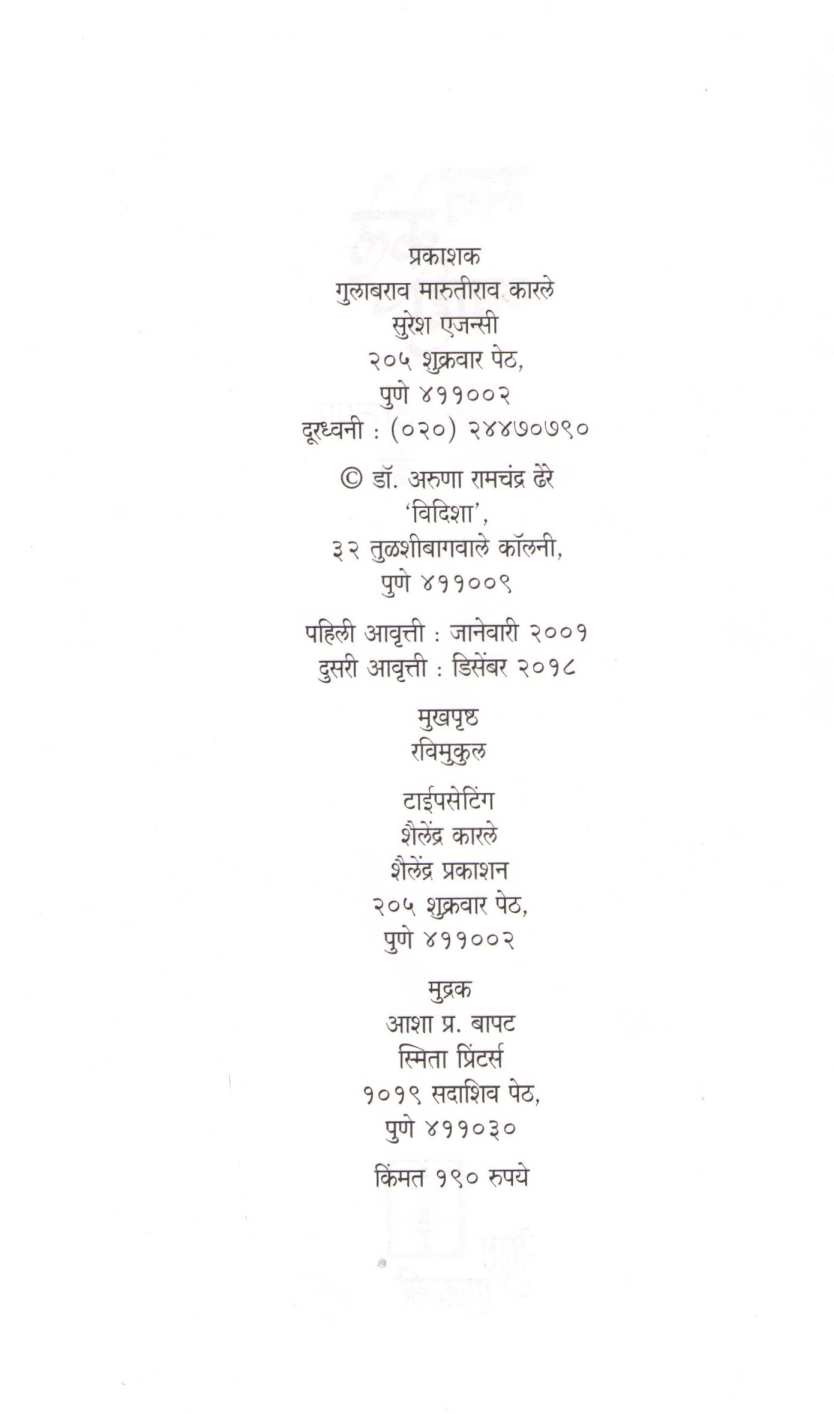 प्रकाशक
गुलाबराव मारुतीराव कारले
सुरेश एजन्सी
२०५ शुक्रवार पेठ,
पुणे ४११००२
दूरध्वनी : (०२०) २४४७०७९०
© डॉ. अरुणा रामचंद्र ढेरे
‘विदिशा’,
३२ तुळशीबागवाले कॉलनी,
पुणे ४११००९
पहिली आवृत्ती : जानेवारी २००१
दुसरी आवृत्ती : डिसेंबर २०१८
मुखपृष्ठ
रविमुकुल
टाईपसेटिंग
शैलेंद्र कारले
शैलेंद्र प्रकाशन
२०५ शुक्रवार पेठ,
पुणे ४११००२
मुद्रक
आशा प्र. बापट
स्मिता प्रिंटर्स
१०१९ सदाशिव पेठ,
पुणे ४११०३०
किंमत १९० रुपये